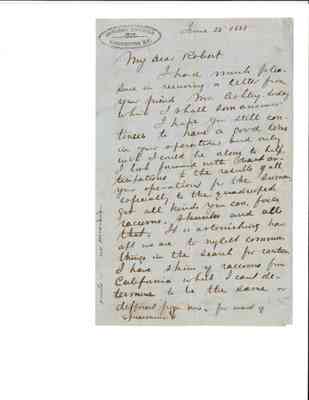 June 23 1861
My dear Robert
I had much plea-
sure in receiving a letter from
your friend Mr Ashley today
which I shall soon answer
I hope you still con-
tinue to have a good time
in your operations and only
wish I could be along to help.
I look forward with
to the results of all
your operations for the summer
especially to the quadrupeds
get all kinds you can, foxes
raccoons, skunks and all
that. It is astonishing how
apt we are to neglect common
things in the search for
I have skins of raccoons from
California which I cant de-
termine to be the same or
different from ours, for want of
specimens